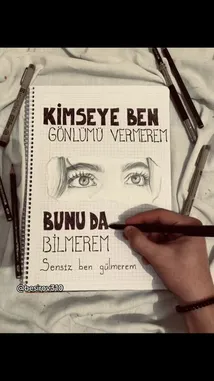 KİMSEYE BEN
GÖNLÜMÜ VERMEREM
BUNU DA
BİLMEREM
Sensiz ben gülmerem
@besirov510